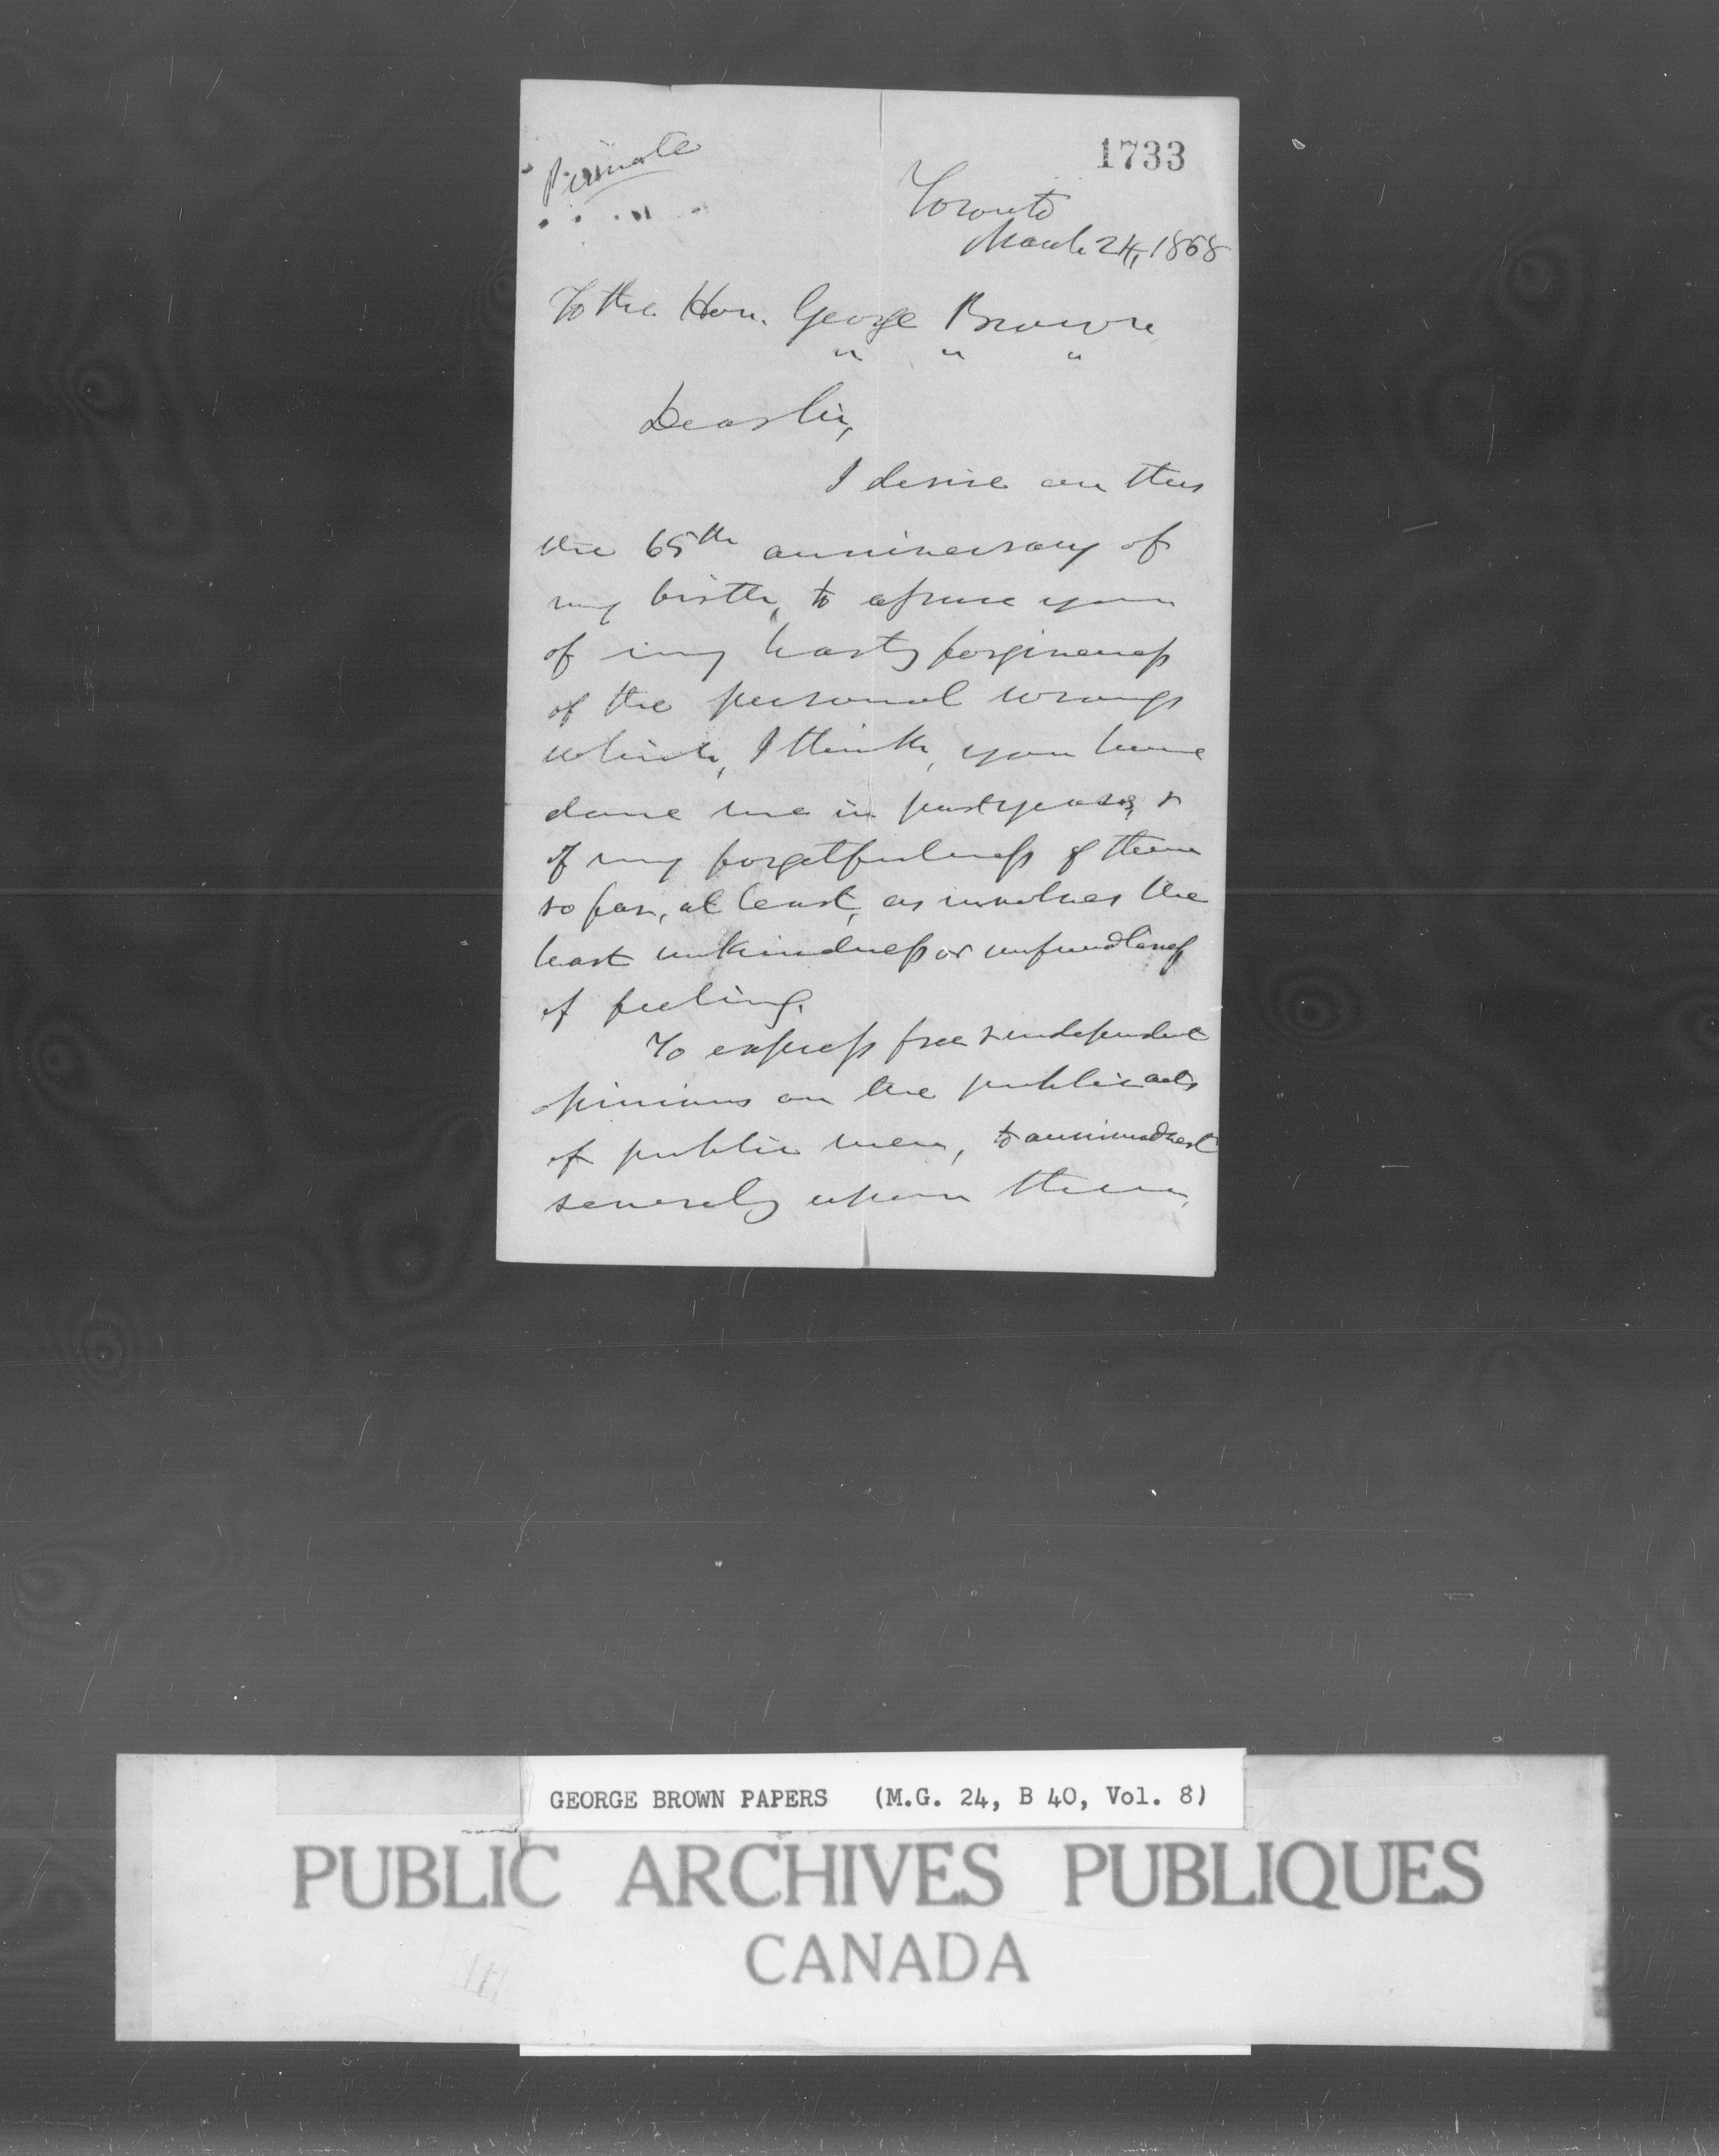 Private
1733
Toronto
March 24, 1868
To the Hon. George Brown
" " "
Dear Sir,
I desire on this
the 65th anniversary of
my birth, to assure you
of my hearty forgiveness
of the personal wrongs
which, I think, you have
done me in past years, &
of my forgetfulness of them
so far, at least, as involves the
least unkindness or unfriendliness
of feeling.
To express free & independent
opinions on the public acts
of public men, to animadvert
severely upon them,
GEORGE BROWN PAPERS (M.G. 24, B 40, Vol. 8)
PUBLIC ARCHIVES PUBLIQUES
CANADA